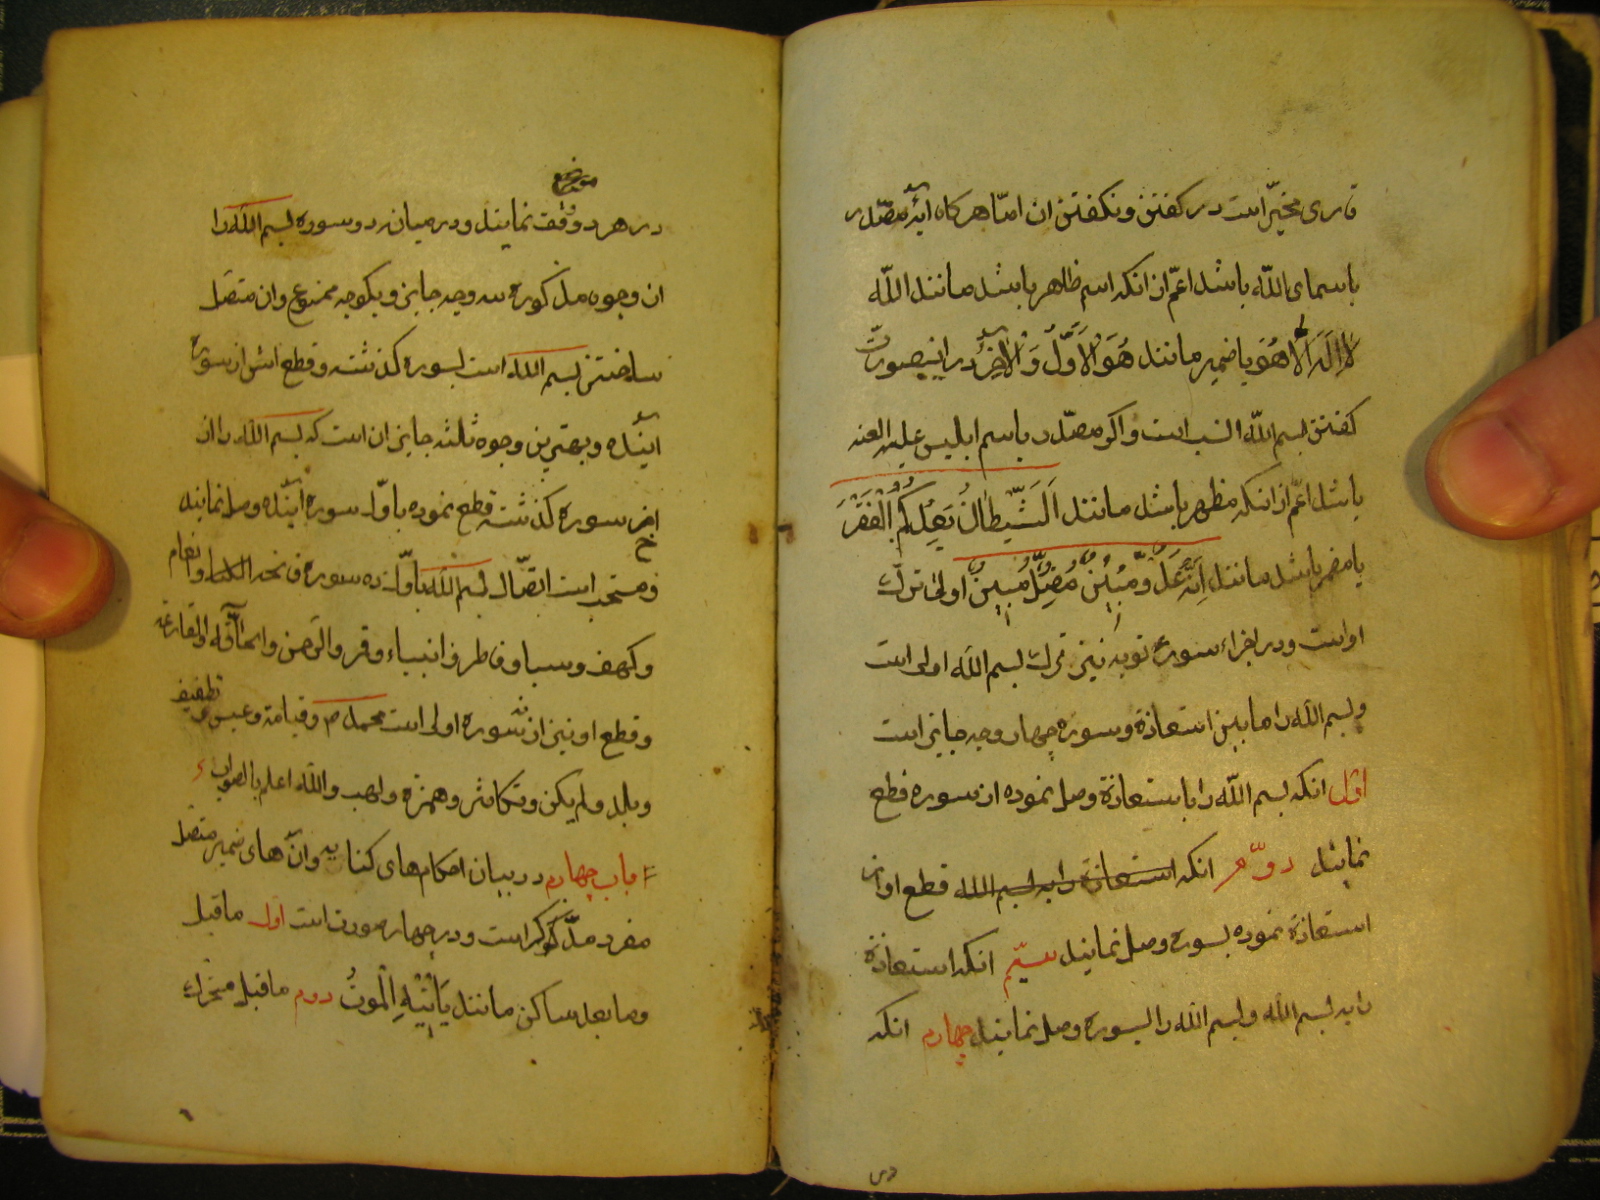 قاری مخیّر است در کفتن ونکفتن ان امّا هرکاه ایهٔ مصدّر
باسمای اللّه باشد اعمّ از انکه اسم ظاهر باشد مانند اللّه
لا اِلٰهَ اِلّا هُوَ یا ضمیر مانند هُوَ الْاَوَّلُ وَ الْاٰخِرُ در اینصورت
کفتن بسم اللّه انسب است واکر مصدّر باسم ابلیس علیه العنه
باشد اعمّ از انکه مظهر باشد مانند اَلشَّیْطَانُ یَعِدُکُمُ الْفَقْرَ
یا مضمر باشد مانند اِنَّهُ عَدُوٌّ مُّبِیْنٌ مُضِلٌّ مُبِیْنٌ اولی ترک
او است ودر اجزاء سورهٔ توبه نیز ترک بسم اللّه اولی است
وبسم اللّه را مابین استعاذه وسوره چهار وجه جایز است
اوّل انکه بسم اللّه را باستعاذه وصل نموده از سوره قطع
نمایند دوّم انکه استعاذة را به بسم اللّه قطع او از
استعاذه نموده بسوره وصل نمایند سیّم انکه استعاذة
را به بسم اللّه وبسم اللّه را بسوره وصل نمایند چهارم انکه
در هر دو موضع وقف نمایند ودر میان دو سوره بسم اللّه را
ان وجوه مذکوره سه وجه جایز ویکوجه ممنوع وان متصل
ساختن بسم اللّه است بسوره کذشته وقطع اش از سورهٔ
اینده وبهترین وجوه ثلثه جایز ان است که بسم اللّه را از
اخر سوره کذشته قطع نموده باوّل سوره اینده وصل نمایند
ومستحب است اتصّال بسم اللّه باوّل ده سوره فاتحة الکتاب وانعام
وکهف وسبا وفاطر وانبیاء وقمر والرّحمن والحآقّه والقارعه
وقطع او نیز از نه سوره اولی است محمد ص وقیامة وعبس وتطفیف
وبلد ولم یکن وتکاثر وهمزه ولهب واللّه اعلم بالصواب
باب چهارم در بیان احکام های کنایه وان های ضمیر متصل
مفرد مذکّر است ودر چهار صورت است اوّل ماقبل
ومابعد ساکن مانند یَأْتِیْهِ الْمَوتُ دوم ماقبل متحرّک